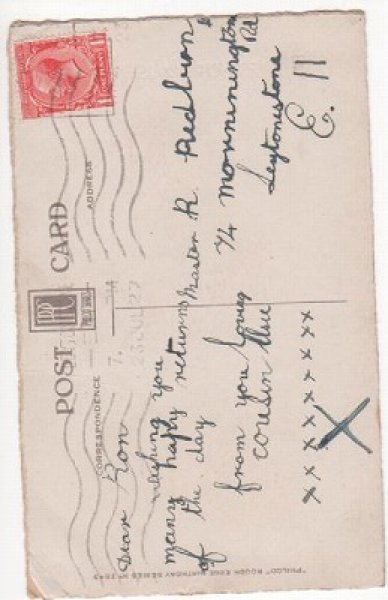 POST CARD
CORRESPONDENCE
ADDRESS
Dear Ron
wishing you
many happy returns
of the day
from you loving
cousin
x x x x x x x x x x
X
Master R. Redburn
74 Mornington Rd
Leytonstone
E. 11
"PHILCO" ROUGH EDGE BIRTHDAY SERIES Nº